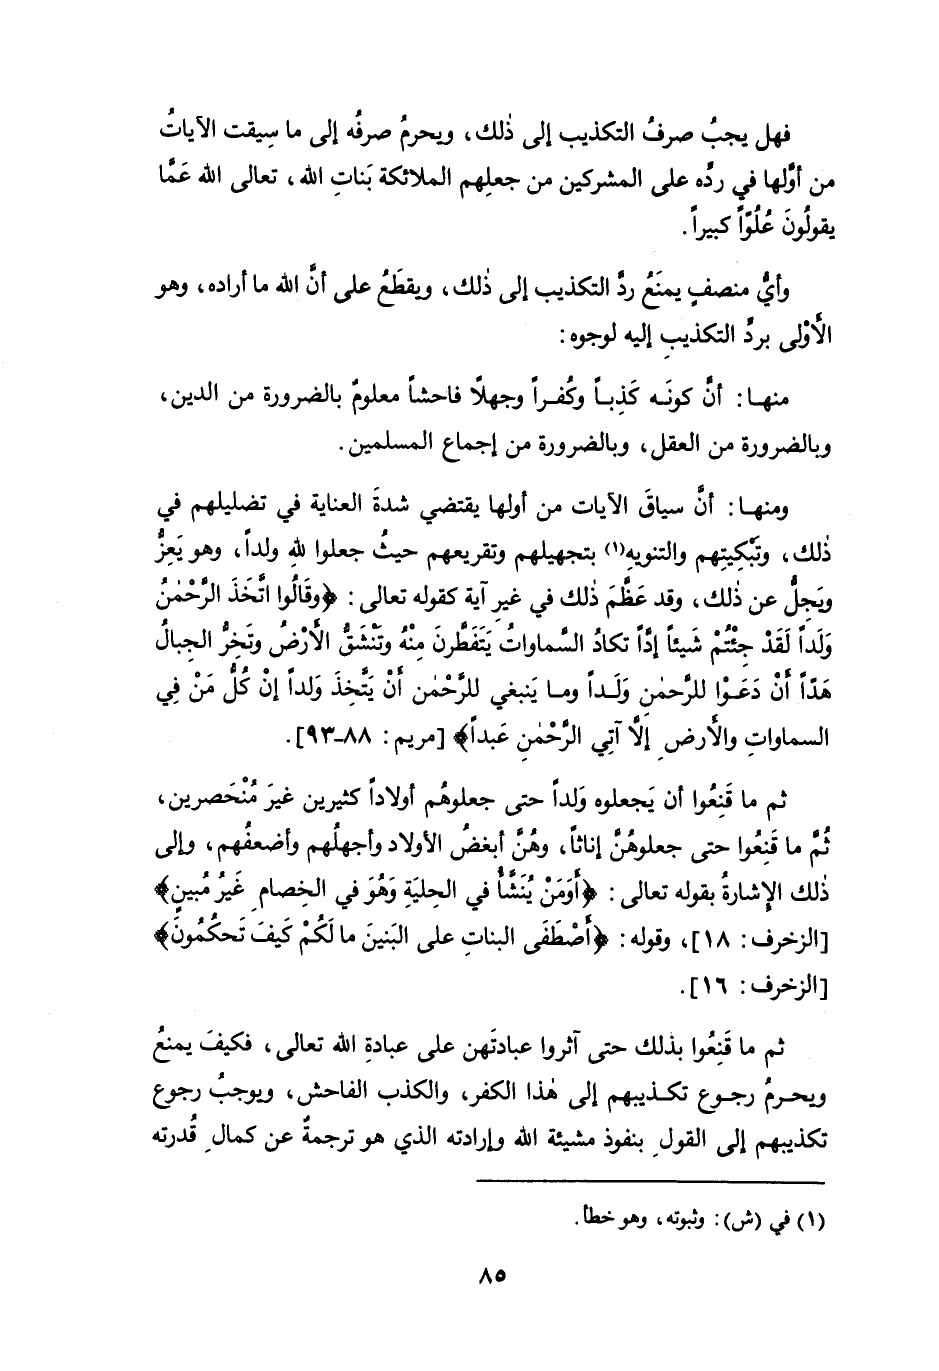 فهل يجبُ صرفُ التكذيب إلى ذٰلك، ويحرمُ صرفُه إلى ما سِيقت الآياتُ
من أوَّلها في ردِّه على المشركين من جعلِهم الملائكة بَناتِ الله، تعالى الله عَمَّا
يقولُونَ عُلُوّاً كبيراً.
وأيُّ منصفٍ يمنَعُ ردَّ التكذيب إلى ذٰلك، ويقطَعُ على أنَّ الله ما أراده، وهو
الأَوْلى بردِّ التكذيبِ إليه لوجوه:
منهـا: أنَّ كونَـه كَذِبـاً وكُفـراً وجهلًا فاحشاً معلومٌ بالضرورة من الدين،
وبالضرورة من العقل، وبالضرورة من إجماع المسلمين.
ومنهـا: أنَّ سياقَ الآيات من أولها يقتضي شدةَ العناية في تضليلهم في
ذٰلك، وتَبْكِيتِهم والتنويه(١) بتجهيلهم وتقريعهم حيثُ جعلوا للهِ ولداً، وهو يَعِزُّ
ويَجِلُّ عن ذٰلك، وقد عَظَّمَ ذٰلك في غيرِ آية كقوله تعالى: ﴿وقَالُوا اتَّخَذَ الرَّحْمٰنُ
وَلَداً لَقَدْ جِئْتُمْ شَيئاً إدّاً تكادُ السَّماواتُ يَتَفَطَّرنَ مِنْهُ وتَنْشَقُّ الأَرْضُ وتَخِرُّ الجبالُ
هَدّاً أَنْ دَعَـوْا للرَّحمٰنِ وَلَـداً ومـا يَنبغي للرَّحْمٰن أَنْ يَتَّخِذَ وَلداً إنْ كُلُّ مَنْ فِي
السماواتِ والأَرضِ إلَّا آتِي الرَّحْمٰنِ عَبداً﴾ [مريم: ٨٨-٩٣].
ثم ما قَنِعُوا أن يَجعلوه وَلداً حتى جعلوهُم أولاداً كثيرين غيرَ مُنْحَصرين،
ثُمَّ ما قَنِعُوا حتى جعلوهُنَّ إناثاً، وهُنَّ أبغضُ الأولاد وأجهلُهم وأضعفُهم، وإلى
ذٰلك الإشارةُ بقوله تعالى: ﴿أَوَمَنْ يُنَشَّأُ في الحليَةِ وَهُوَ في الخِصامِ غَيرُ مُبينٍ﴾
[الزخرف: ١٨]، وقوله: ﴿أَصْطَفَى البناتِ على البَنينَ ما لَكُمْ كَيفَ تَحكُمُونَ﴾
[الزخرف: ١٦].
ثم ما قَنِعُوا بذلك حتى آثروا عبادتَهن على عبادةِ الله تعالى، فكيفَ يمنعُ
ويحـرمُ رجـوع تكـذيبهم إلى هٰذا الكفر، والكذب الفاحش، ويوجبُ رجوع
تكذيبهم إلى القولِ بنفوذ مشيئة الله وإرادته الذي هو ترجمةٌ عن كمالِ قُدرته
(١) في (ش): وثبوته، وهو خطأ.
٨٥